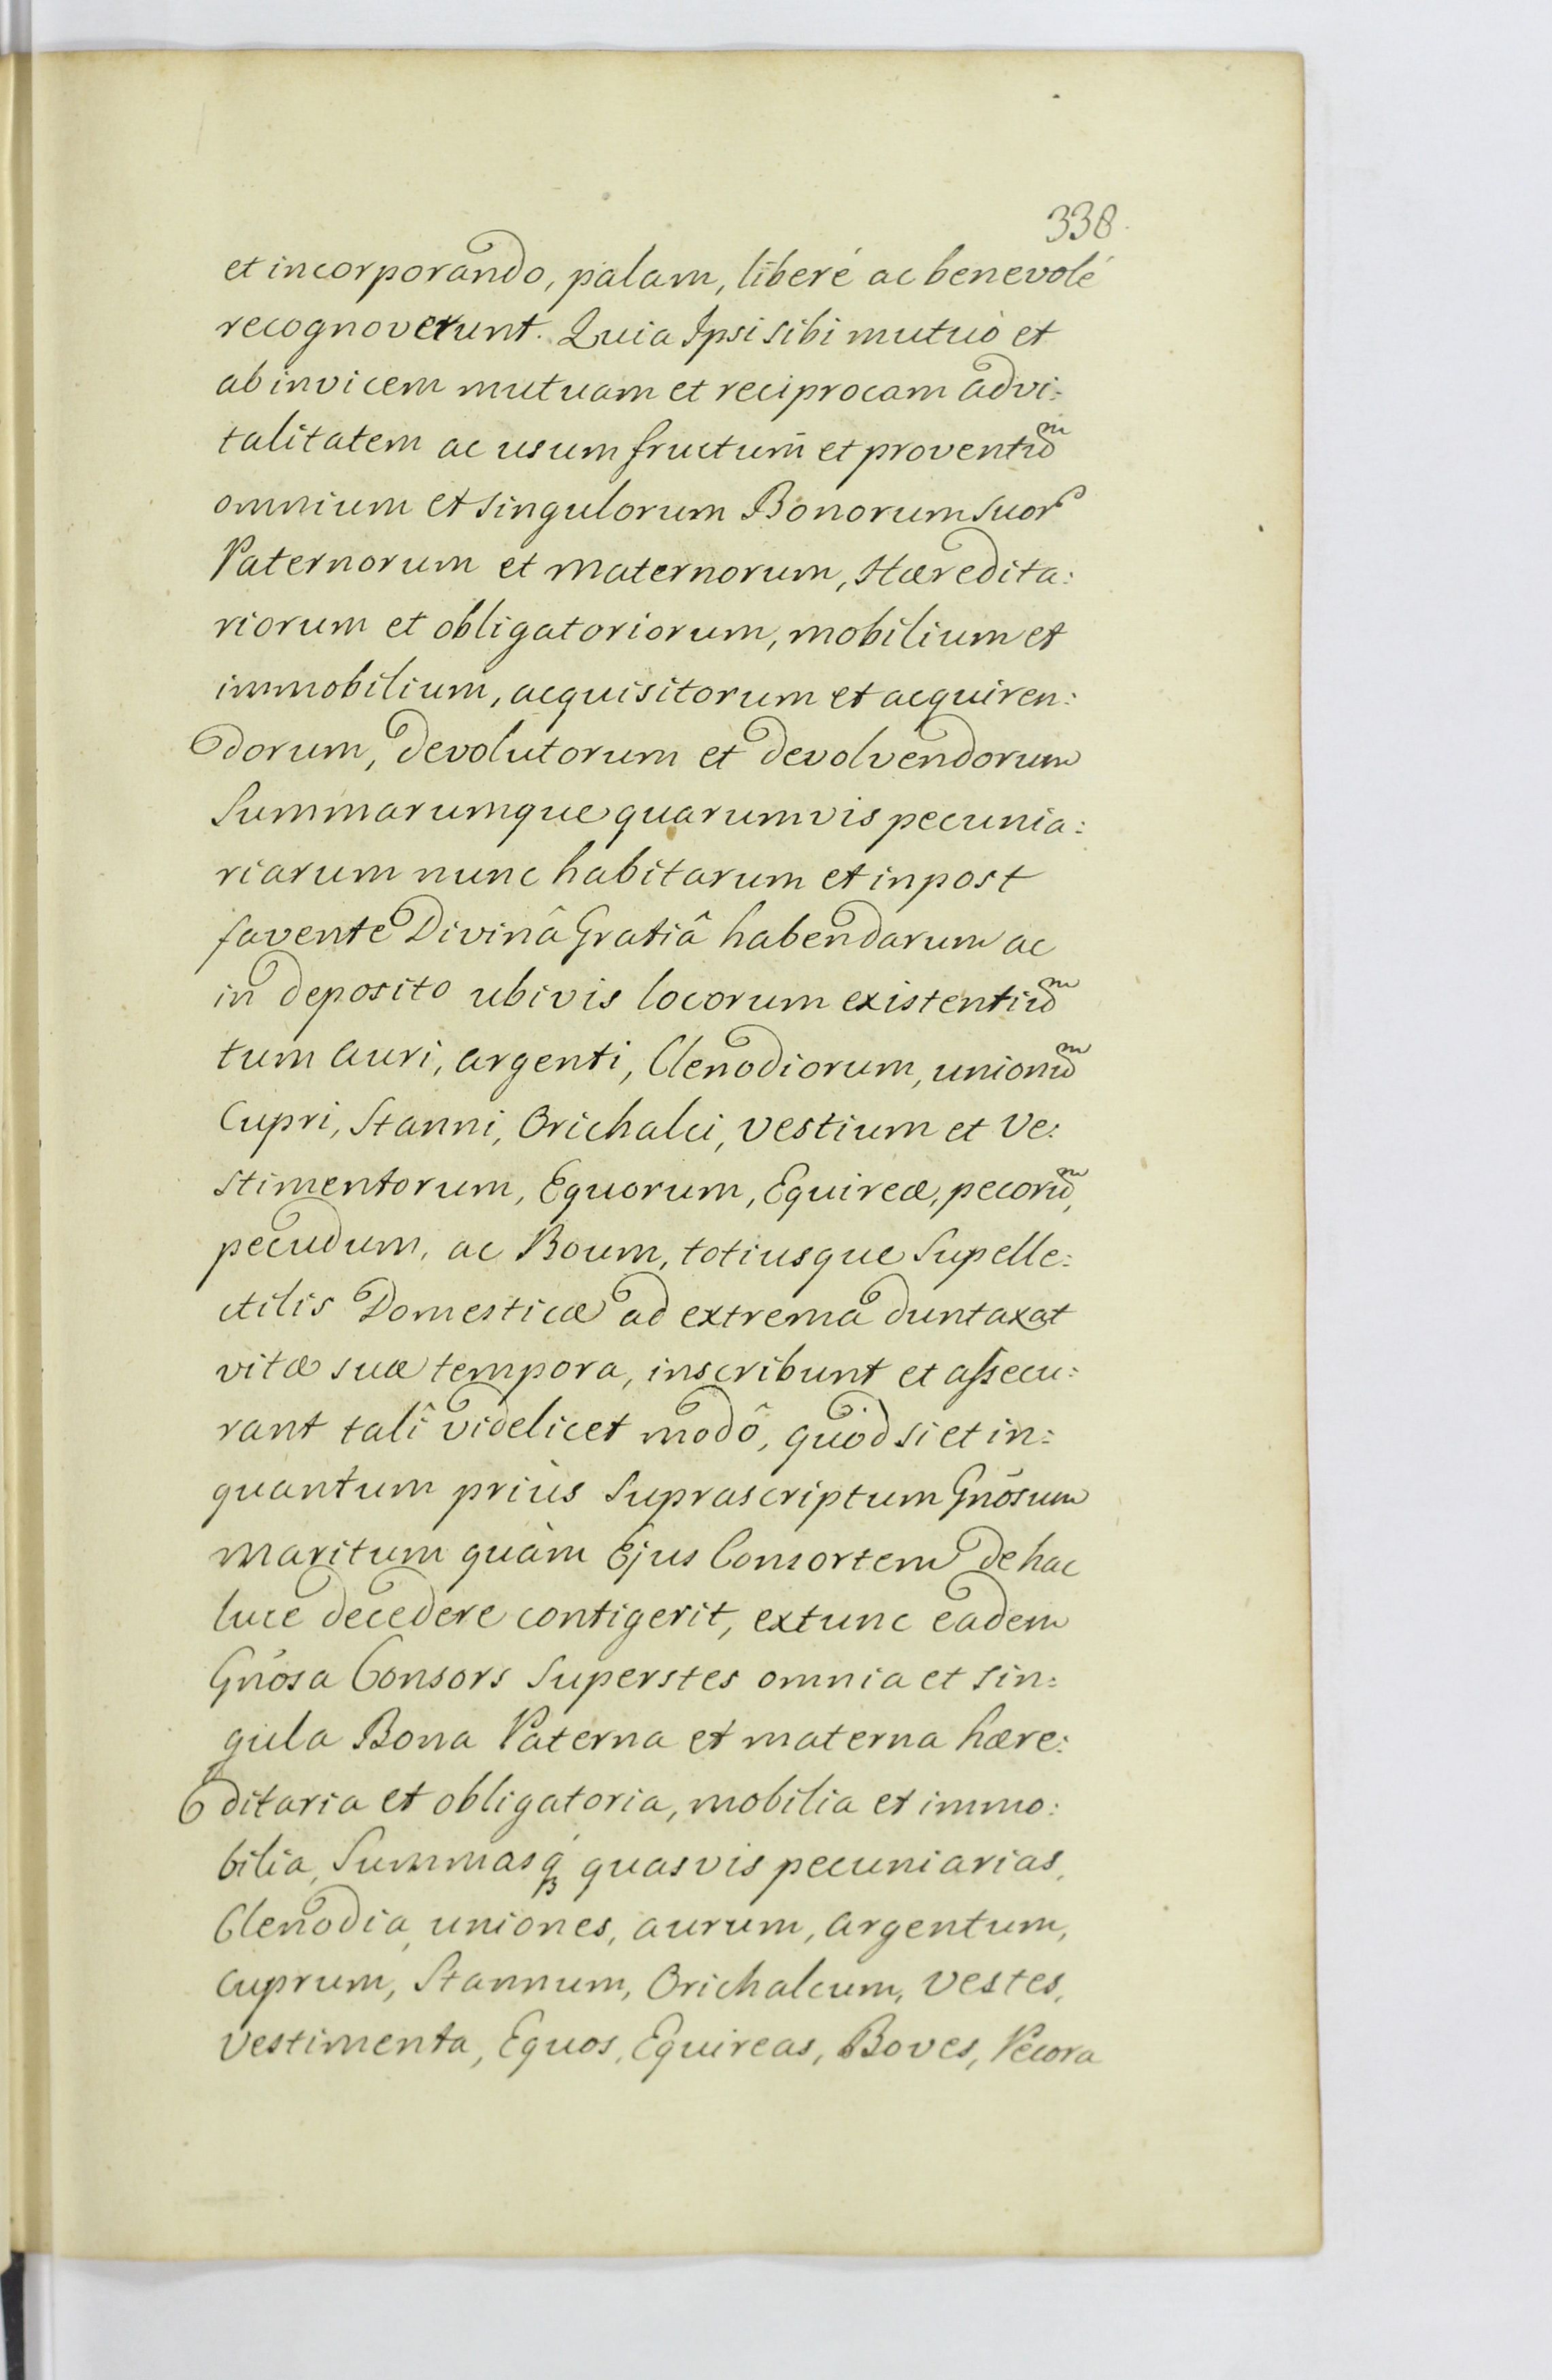 338.
et incorporando, palam, liberé ac benevolé
recognoverunt. Quia Ipsi sibi mutuò et
ab invicem mutuam et reciprocam advi:
talitatem ac usum fructum̄ et proventuᵐ
omnium et singulorum Bonorum suor
Paternorum et maternorum, Hæredita:
riorum et obligatoriorum, mobilium et
immobilium, acquisitorum et acquiren:
dorum, devolutorum et devolvendorum
Summarumque quarumvis pecunia:
riarum nunc habitarum et inpost
favente Divinâ Gratiâ habendarum ac
in deposito ubivis locorum existentiuᵐ
tum auri, argenti, Clenodiorum, unionuᵐ
Cupri, Stanni, Orichalci, vestium et ve:
stimentorum, Equorum, Equireæ, pecoruᵐ,
pecudum, ac Boum, totiusque Supelle:
ctilis Domesticæ ad extrema duntaxat
vitæ suæ tempora, inscribunt et assecu:
rant talî videlicet modô, quòd si et in:
quantum priùs Suprascriptum Gñosum
maritum quàm Ejus Consortem de hac
luce decedere contigerit, extunc eadem
Gñosa Consors Superstes omnia et sin:
gula Bona Paterna et materna hære:
ditaria et obligatoria, mobilia et immo:
bilia, Summasq́ꝫ quasvis pecuniarias,
Clenodia, uniones, aurum, argentum,
cuprum, Stannum, Orichalcum, vestes,
vestimenta, Equos, Equireas, Boves, Pecora